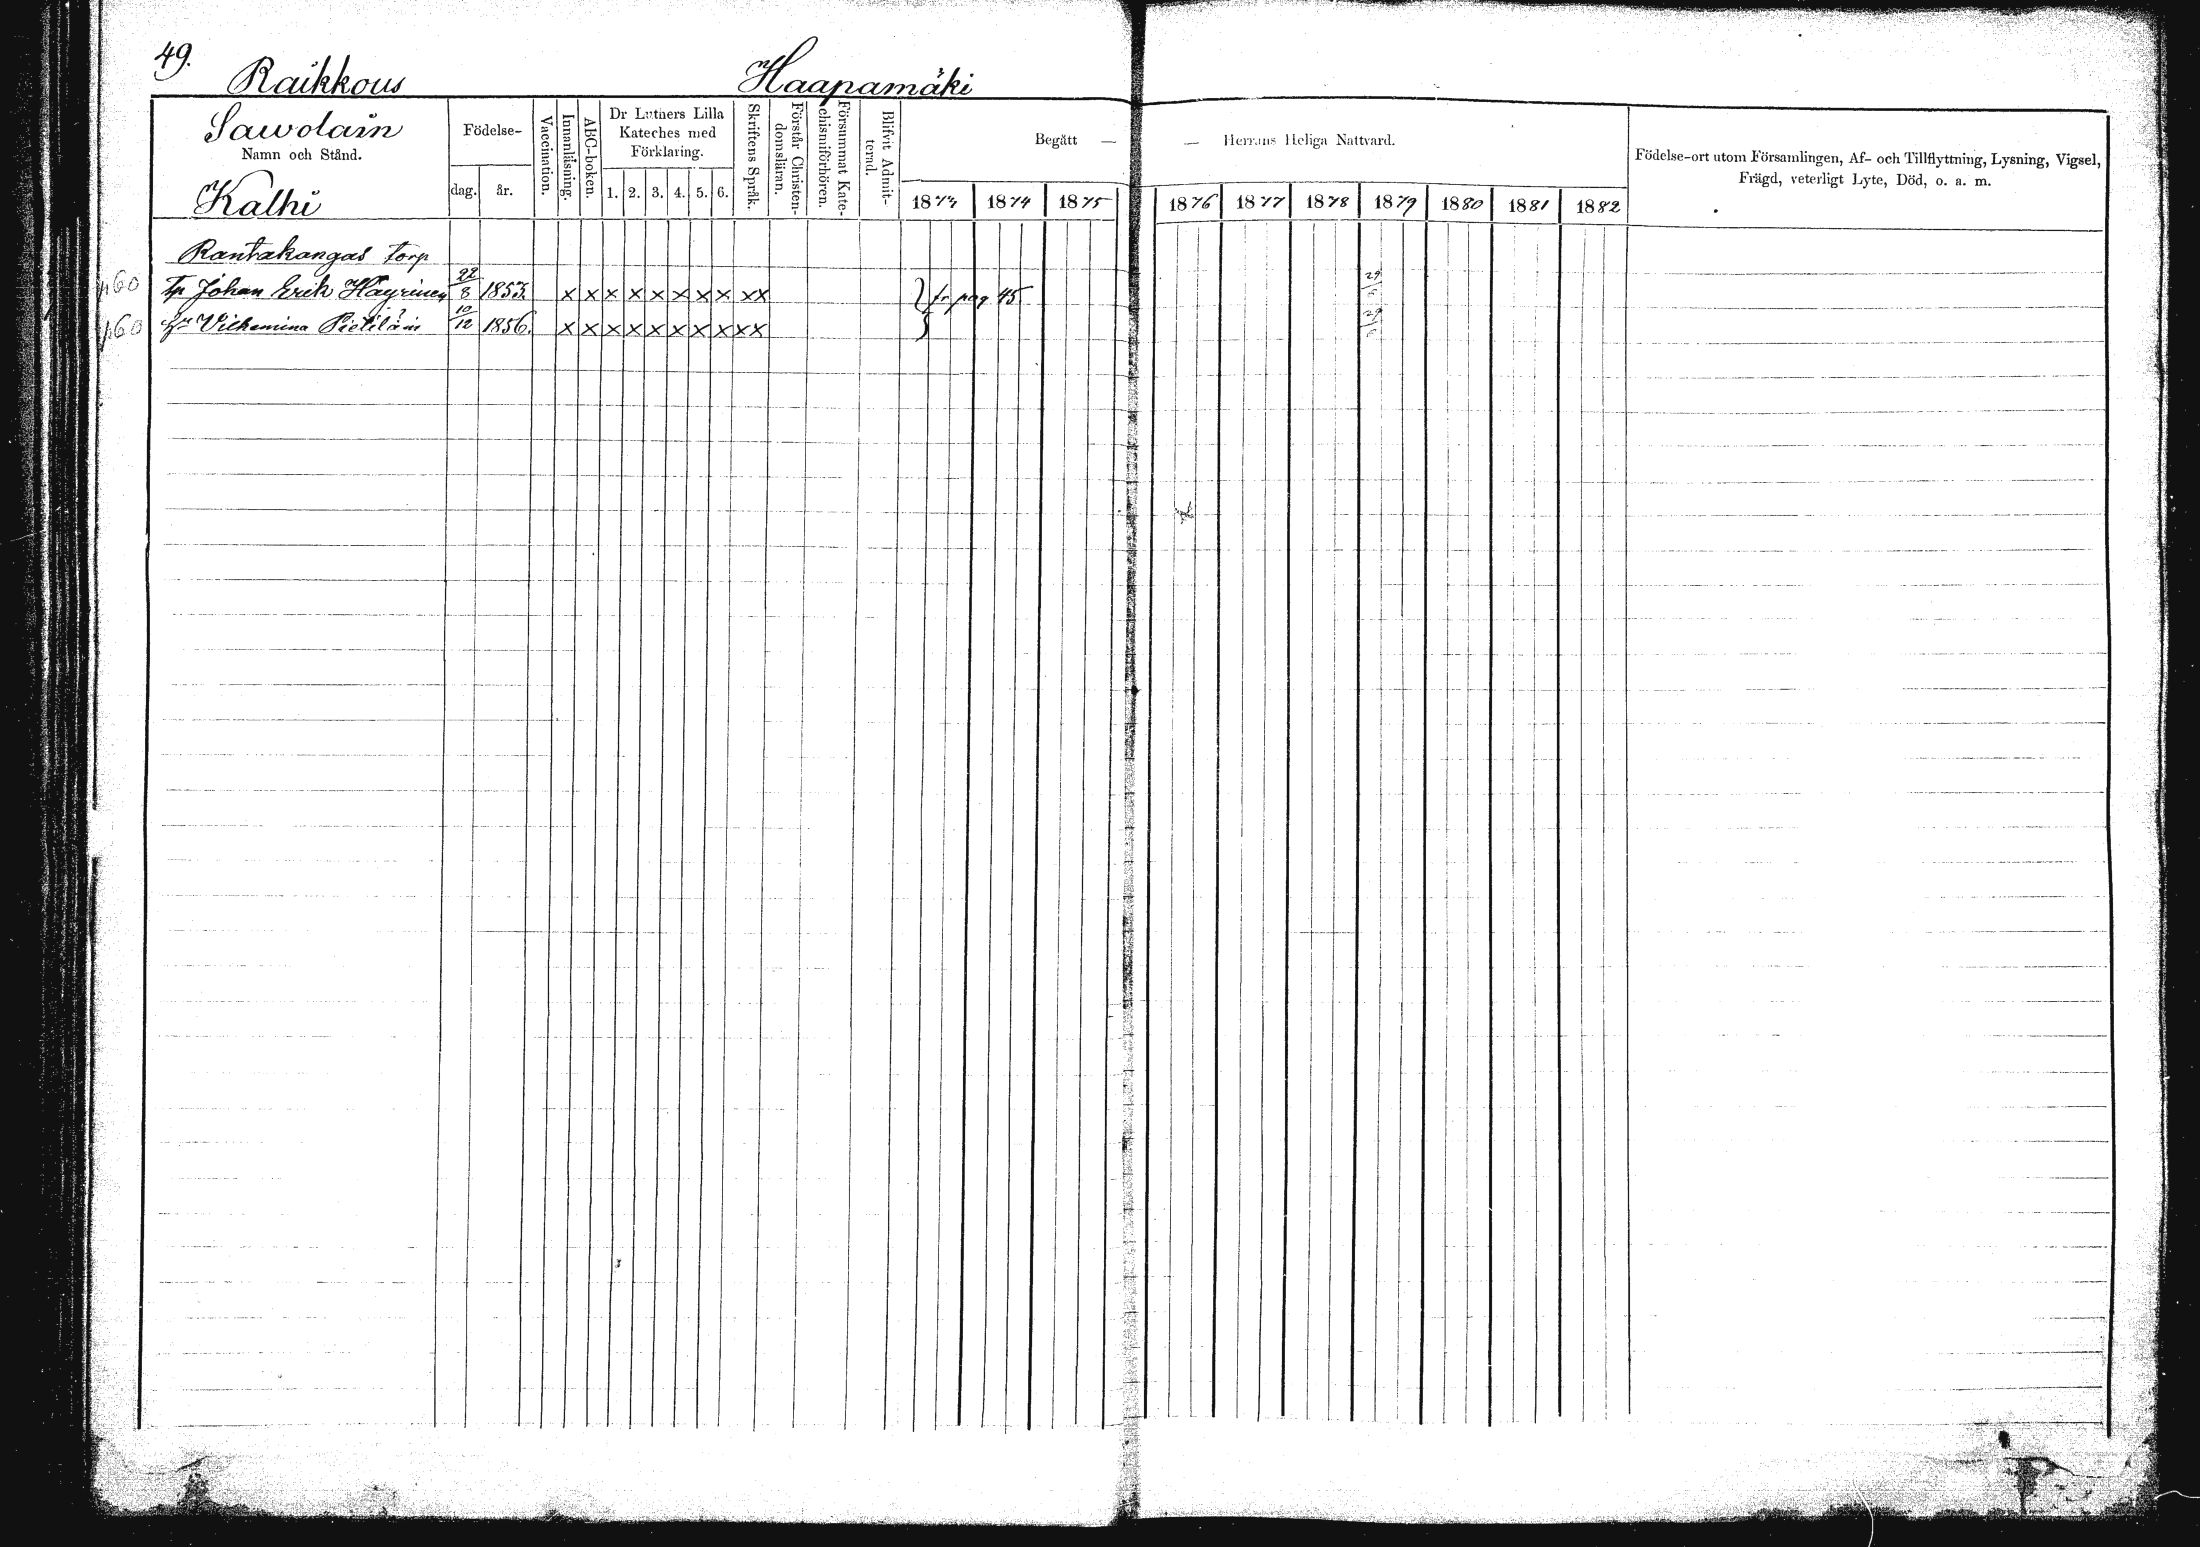 49.
Raikkous Haapamäki
Sawolain
Namn och Stånd.
Kalhi
Födelse-
dag. år.
Vaccination.
Innanläsning.
ABC-boken.
Dr Luthers Lilla
Kateches med
Förklaring.
1. 2. 3. 4. 5. 6.
Skriftens Språk.
Förstår Christen-
domsläran.
Försummat Kate-
chismiförhören.
Blifvit Admit-
terad.
Begått — — Herrans Heliga Nattvard.
1873 1874 1875 1876 1877 1878 1879 1880 1881 1882
Födelse-ort utom Församlingen, Af- och Tillflyttning, Lysning, Vigsel,
Frägd, veterligt Lyte, Död, o. a. m.
Rantakangas torp
p60 Tp Johan Erik Häyrinen 22/8 1853. x x x x x x x x x x } fr pag 45
p60 hu Vilhemina Pietiläin 10/12 1856. x x x x x x x x x x